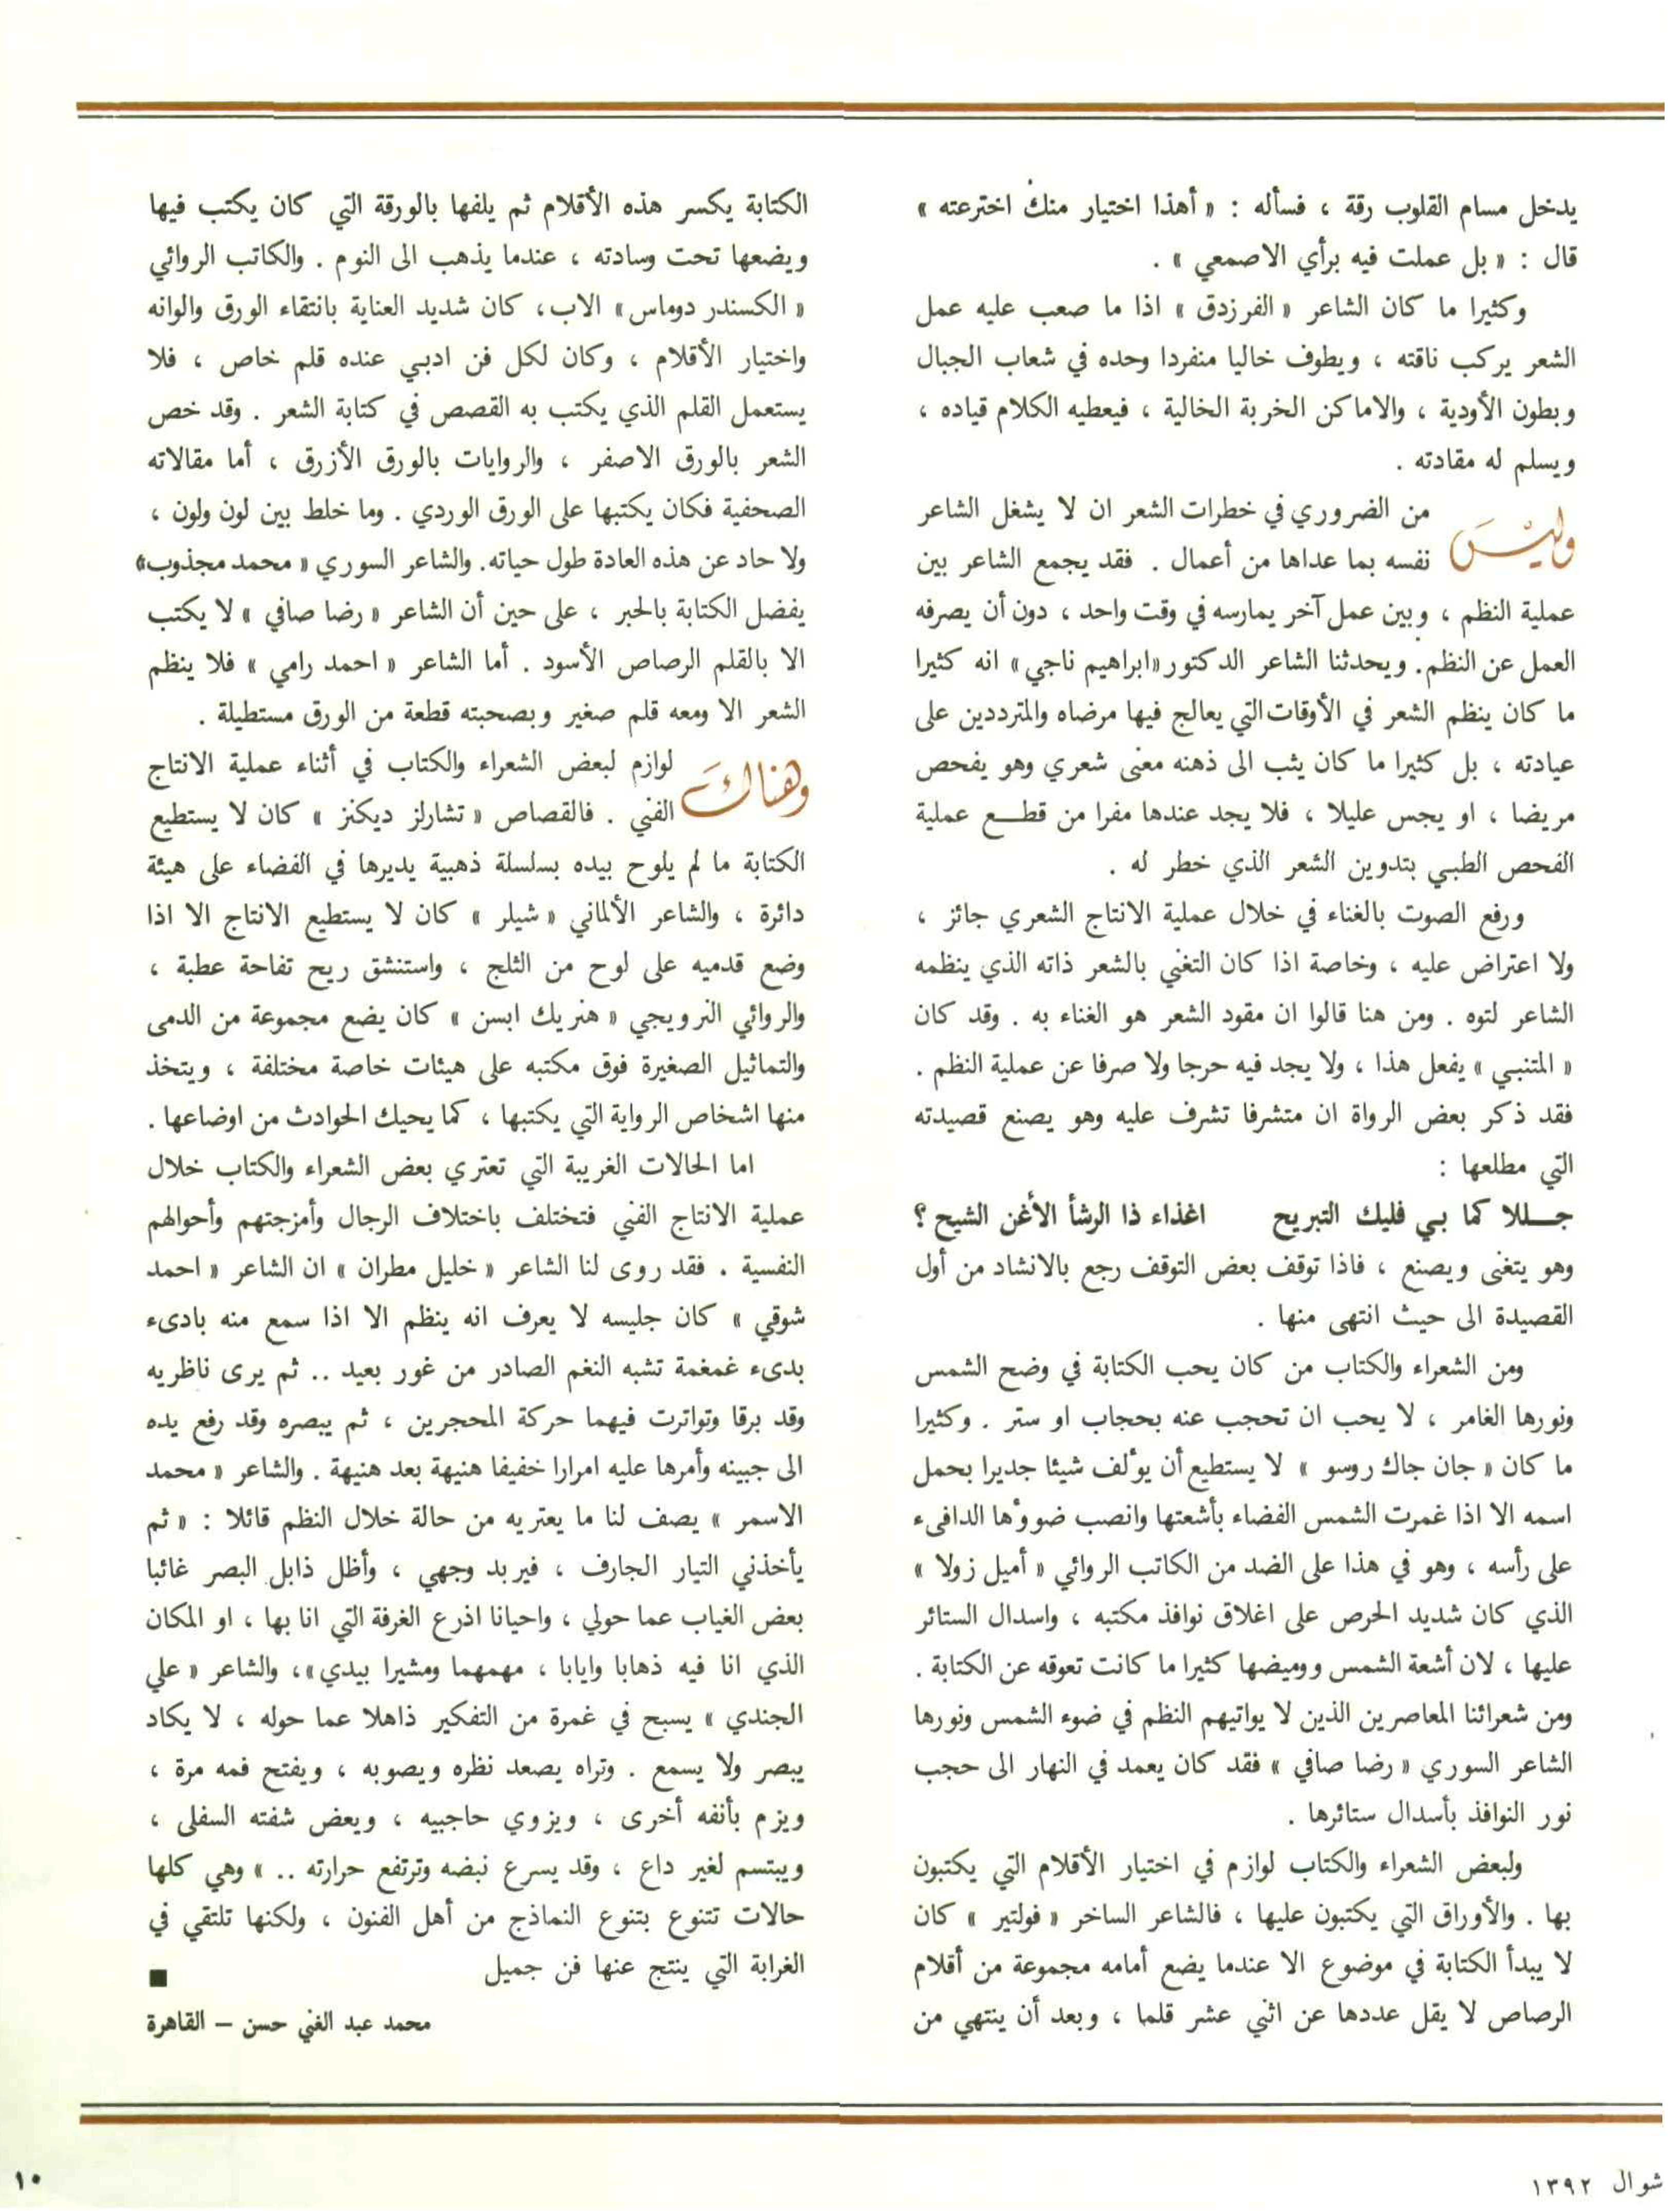 يدخل مسام القلوب رقة ، فسأله : « أهذا اختيار منك اخترعته »
قال : « بل عملت فيه برأي الاصمعي » .
وكثيرا ما كان الشاعر « الفرزدق » اذا ما صعب عليه عمل
الشعر يركب ناقته ، ويطوف خاليا منفردا وحده في شعاب الجبال
وبطون الأودية ، والاماكن الخربة الخالية ، فيعطيه الكلام قياده ،
ويسلم له مقادته .
وليْسَ من الضروري في خطرات الشعر ان لا يشغل الشاعر
نفسه بما عداها من أعمال . فقد يجمع الشاعر بين
عملية النظم ، وبين عمل آخر يمارسه في وقت واحد ، دون أن يصرفه
العمل عن النظم . ويحدثنا الشاعر الدكتور « ابراهيم ناجي » انه كثيرا
ما كان ينظم الشعر في الأوقات التي يعالج فيها مرضاه والمترددين على
عيادته ، بل كثيرا ما كان يثب الى ذهنه معنى شعري وهو يفحص
مريضا ، او يجس عليلا ، فلا يجد عندها مفرا من قطـع عملية
الفحص الطبي بتدوين الشعر الذي خطر له .
ورفع الصوت بالغناء في خلال عملية الانتاج الشعري جائز ،
ولا اعتراض عليه ، وخاصة اذا كان التغني بالشعر ذاته الذي ينظمه
الشاعر لتوه . ومن هنا قالوا ان مقود الشعر هو الغناء به . وقد كان
« المتنبي » يفعل هذا ، ولا يجد فيه حرجا ولا صرفا عن عملية النظم .
فقد ذكر بعض الرواة ان متشرفا تشرف عليه وهو يصنع قصيدته
التي مطلعها :
جـللا كما بي فليك التبريح اغذاء ذا الرشأ الأغن الشيح ؟
وهو يتغنى ويصنع ، فاذا توقف بعض التوقف رجع بالانشاد من أول
القصيدة الى حيث انتهى منها .
ومن الشعراء والكتاب من كان يحب الكتابة في وضح الشمس
ونورها الغامر ، لا يحب ان تحجب عنه بحجاب او ستر . وكثيرا
ما كان « جان جاك روسو » لا يستطيع أن يؤلف شيئا جديرا بحمل
اسمه الا اذا غمرت الشمس الفضاء بأشعتها وانصب ضوؤها الدافىء
على رأسه ، وهو في هذا على الضد من الكاتب الروائي « أميل زولا »
الذي كان شديد الحرص على اغلاق نوافذ مكتبه ، واسدال الستائر
عليها ، لان أشعة الشمس ووميضها كثيرا ما كانت تعوقه عن الكتابة .
ومن شعرائنا المعاصرين الذين لا يواتيهم النظم في ضوء الشمس ونورها
الشاعر السوري « رضا صافي » فقد كان يعمد في النهار الى حجب
نور النوافذ بأسدال ستائرها .
ولبعض الشعراء والكتاب لوازم في اختيار الأقلام التي يكتبون
بها . والأوراق التي يكتبون عليها ، فالشاعر الساخر « فولتير » كان
لا يبدأ الكتابة في موضوع الا عندما يضع أمامه مجموعة من أقلام
الرصاص لا يقل عددها عن اثني عشر قلما ، وبعد أن ينتهي من
الكتابة يكسر هذه الأقلام ثم يلفها بالورقة التي كان يكتب فيها
ويضعها تحت وسادته ، عندما يذهب الى النوم . والكاتب الروائي
« الكسندر دوماس » الاب ، كان شديد العناية بانتقاء الورق والوانه
واختيار الأقلام ، وكان لكل فن ادبي عنده قلم خاص ، فلا
يستعمل القلم الذي يكتب به القصص في كتابة الشعر . وقد خص
الشعر بالورق الاصفر ، والروايات بالورق الأزرق ، أما مقالاته
الصحفية فكان يكتبها على الورق الوردي . وما خلط بين لون ولون ،
ولا حاد عن هذه العادة طول حياته. والشاعر السوري « محمد مجذوب»
يفضل الكتابة بالحبر ، على حين أن الشاعر « رضا صافي » لا يكتب
الا بالقلم الرصاص الأسود . أما الشاعر « احمد رامي » فلا ينظم
الشعر الا ومعه قلم صغير وبصحبته قطعة من الورق مستطيلة .
وهناكَ لوازم لبعض الشعراء والكتاب في أثناء عملية الانتاج
الفني . فالقصاص « تشارلز ديكنز » كان لا يستطيع
الكتابة ما لم يلوح بيده بسلسلة ذهبية يديرها في الفضاء على هيئة
دائرة ، والشاعر الألماني « شيلر » كان لا يستطيع الانتاج الا اذا
وضع قدميه على لوح من الثلج ، واستنشق ريح تفاحة عطبة ،
والروائي النرويجي « هنريك ابسن » كان يضع مجموعة من الدمى
والتماثيل الصغيرة فوق مكتبه على هيئات خاصة مختلفة ، ويتخذ
منها اشخاص الرواية التي يكتبها ، كما يحيك الحوادث من اوضاعها .
اما الحالات الغريبة التي تعتري بعض الشعراء والكتاب خلال
عملية الانتاج الفني فتختلف باختلاف الرجال وأمزجتهم وأحوالهم
النفسية . فقد روى لنا الشاعر « خليل مطران » ان الشاعر « احمد
شوقي » كان جليسه لا يعرف انه ينظم الا اذا سمع منه بادىء
بدىء غمغمة تشبه النغم الصادر من غور بعيد .. ثم يرى ناظريه
وقد برقا وتواترت فيهما حركة المحجرين ، ثم يبصره وقد رفع يده
الى جبينه وأمرها عليه امرارا خفيفا هنيهة بعد هنيهة . والشاعر « محمد
الاسمر » يصف لنا ما يعتريه من حالة خلال النظم قائلا : « ثم
يأخذني التيار الجارف ، فيربد وجهي ، وأظل ذابل البصر غائبا
بعض الغياب عما حولي ، واحيانا اذرع الغرفة التي انا بها ، او المكان
الذي انا فيه ذهابا وايابا ، مهمهما ومشيرا بيدي »، والشاعر « علي
الجندي » يسبح في غمرة من التفكير ذاهلا عما حوله ، لا يكاد
يبصر ولا يسمع . وتراه يصعد نظره ويصوبه ، ويفتح فمه مرة ،
ويزم بأنفه أخرى ، ويزوي حاجبيه ، ويعض شفته السفلى ،
ويبتسم لغير داع ، وقد يسرع نبضه وترتفع حرارته .. » وهي كلها
حالات تتنوع بتنوع النماذج من أهل الفنون ، ولكنها تلتقي في
الغرابة التي ينتج عنها فن جميل ■
محمد عبد الغني حسن – القاهرة
شوال ١٣٩٢
١٠